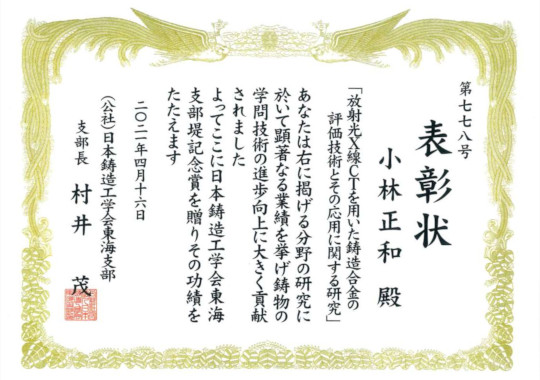 第七七八号
表彰状
小林正和 殿
「放射光X線CTを用いた鋳造合金の
評価技術とその応用に関する研究」
あなたは右に掲げる分野の研究に
於いて顕著なる業績を挙げ鋳物の
学問技術の進歩向上に大きく貢献
されました
よってここに日本鋳造工学会東海
支部堤記念賞を贈りその功績を
たたえます
二〇二一年四月十六日
(公社)日本鋳造工学会東海支部
支部長 村井 茂